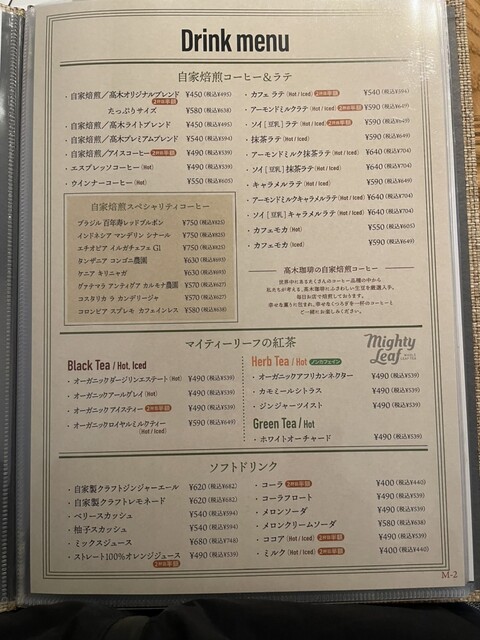 Drink menu
自家焙煎コーヒー＆ラテ
・自家焙煎／高木オリジナルブレンド 2杯目半額 ¥450（税込¥495）
たっぷりサイズ ¥580（税込¥638）
・自家焙煎／高木ライトブレンド ¥450（税込¥495）
・自家焙煎／高木プレミアムブレンド ¥490（税込¥539）
・自家焙煎／アイスコーヒー 2杯目半額 ¥490（税込¥539）
・エスプレッソコーヒー（Hot） ¥490（税込¥539）
・ウインナーコーヒー（Hot） ¥550（税込¥605）
自家焙煎スペシャリティコーヒー
ブラジル 百年寿レッドブルボン ¥750（税込¥825）
インドネシア マンデリン シナール ¥750（税込¥825）
エチオピア イルガチェフェ G1 ¥750（税込¥825）
タンザニア コンゴニ農園 ¥630（税込¥693）
ケニア キリニャガ ¥630（税込¥693）
グァテマラ アンティグア カルモナ農園 ¥570（税込¥627）
コスタリカ ラ カンデリージャ ¥570（税込¥627）
コロンビア スプレモ カフェインレス ¥580（税込¥638）
・カフェ ラテ（Hot / Iced）2杯目半額 ¥540（税込¥594）
・アーモンドミルクラテ（Hot / Iced）2杯目半額 ¥590（税込¥649）
・ソイ［豆乳］ラテ（Hot / Iced）2杯目半額 ¥590（税込¥649）
・抹茶ラテ（Hot / Iced） ¥590（税込¥649）
・アーモンドミルク抹茶ラテ（Hot / Iced） ¥640（税込¥704）
・ソイ［豆乳］抹茶ラテ（Hot / Iced） ¥640（税込¥704）
・キャラメルラテ（Hot / Iced） ¥590（税込¥649）
・アーモンドミルクキャラメルラテ（Hot / Iced） ¥640（税込¥704）
・ソイ［豆乳］キャラメルラテ（Hot / Iced） ¥640（税込¥704）
・カフェモカ（Hot） ¥550（税込¥605）
・カフェモカ（Iced） ¥590（税込¥649）
高木珈琲の自家焙煎コーヒー
世界中にある多くさんのコーヒー品種の中から
私たちが考える、高木珈琲にふさわしい生豆を厳選入手。
毎日お店で焙煎しております。
幸せな薫りに包まれ、幸せなくつろぎを一杯のコーヒーと
ご一緒にお楽しみください。
マイティーリーフの紅茶
Mighty Leaf
Black Tea / Hot, Iced
・オーガニックダージリンエステート（Hot） ¥490（税込¥539）
・オーガニックアールグレイ（Hot） ¥490（税込¥539）
・オーガニックアイスティー 2杯目半額 ¥490（税込¥539）
・オーガニックロイヤルミルクティー ¥590（税込¥649）
（Hot / Iced）
Herb Tea / Hot ノンカフェイン
・オーガニックアフリカンネクター ¥490（税込¥539）
・カモミールシトラス ¥490（税込¥539）
・ジンジャーツイスト ¥490（税込¥539）
Green Tea / Hot
・ホワイトオーチャード ¥490（税込¥539）
ソフトドリンク
・自家製クラフトジンジャーエール ¥620（税込¥682）
・自家製クラフトレモネード ¥620（税込¥682）
・ベリースカッシュ ¥540（税込¥594）
・柚子スカッシュ ¥540（税込¥594）
・ミックスジュース ¥680（税込¥748）
・ストレート100％オレンジジュース ¥490（税込¥539）
2杯目半額
・コーラ 2杯目半額 ¥400（税込¥440）
・コーラフロート ¥490（税込¥539）
・メロンソーダ ¥490（税込¥539）
・メロンクリームソーダ ¥580（税込¥638）
・ココア（Hot / Iced）2杯目半額 ¥490（税込¥539）
・ミルク（Hot / Iced）2杯目半額 ¥400（税込¥440）
M-2